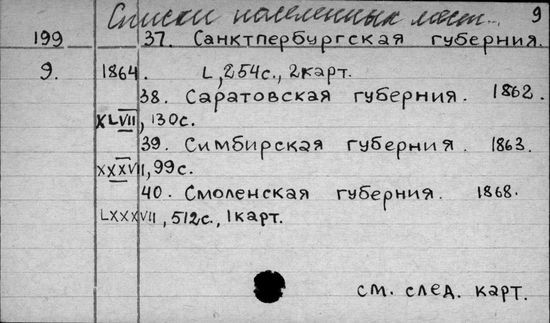 Списки населенных мест... 9
199 37. Санктпербургская губерния.
9. 1864. L, 254с., 2карт.
38. Саратовская губерния. 1862.
XLVII, 130с.
39. Симбирская губерния. 1863.
XXXVII, 99с.
40. Смоленская губерния. 1868.
LXXXVII, 512с., 1карт.
см. след. карт.